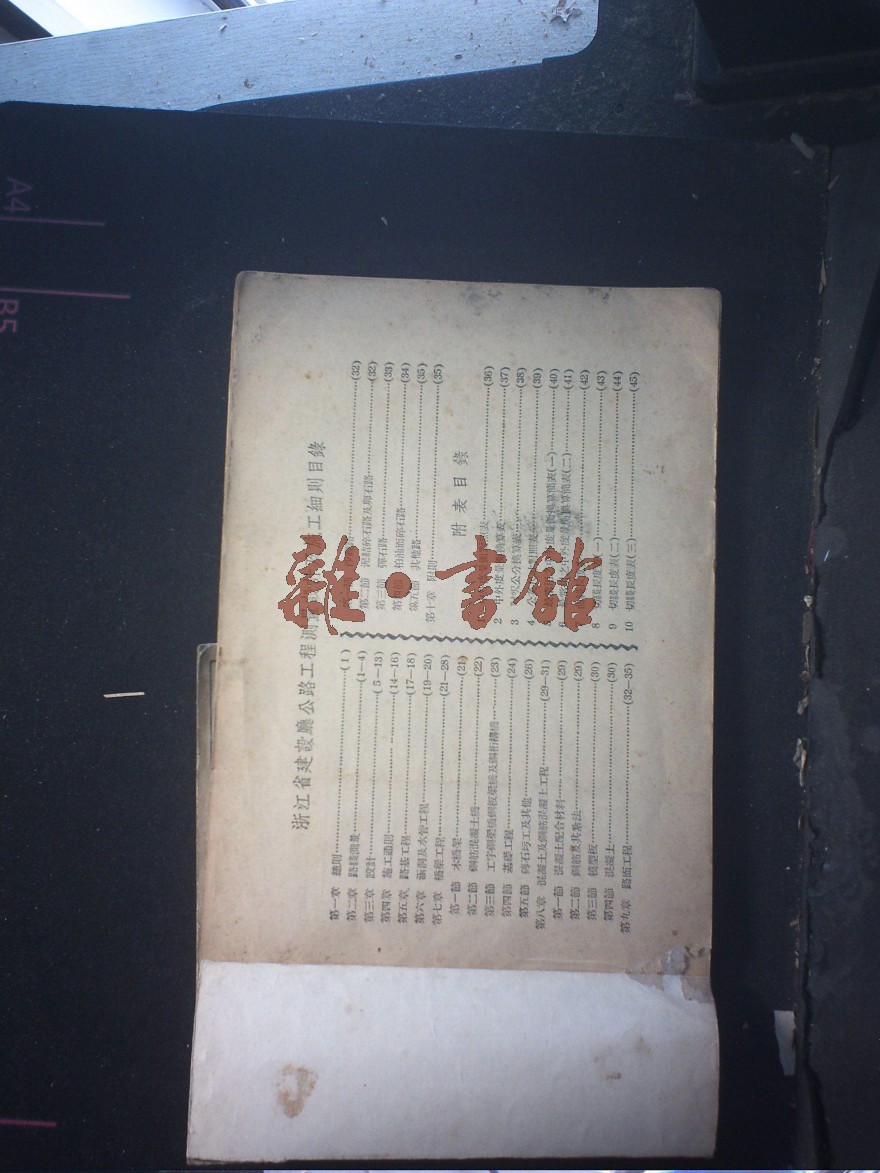 浙江省建設廳公路工程測 工細則目錄
第一章 總則(1)
第二章 路綫測量(1—4)
第三章 設計(5—13)
第四章 施工通則(14—16)
第五章 路基工程(17—18)
第六章 涵洞及水管工程(19—20)
第七章 橋梁工程(21—28)
第一節 木橋架(21)
第二節 鋼筋混凝土橋(22)
第三節 工字鋼梁橋鋼板梁橋及鋼桁構橋(23)
第四節 基礎工程(24)
第五節 磚石圬工及其他(26)
第八章 混凝土及鋼筋混凝土工程(29—31)
第一節 混凝土配合材料(29)
第二節 鋼筋及其紮法(29)
第三節 模型板(30)
第四節 混凝土(30)
第九章 路面工程(32—35)
(32)
第二節 泥結碎石路及卵石路(32)
第三節 彈石路(33)
第四節 柏油面碎石路(34)
第五節 其他路(35)
第十章 附則(35)
附表目錄
表(36)
2 中外度量衡換算表(37)
3 公分換算表(38)
4 對照表(39)
度量衡換算簡表(一)(40)
6 中外度量衡換算簡表(二)(41)
(42)
8 切綫長度表(一)(43)
9 切綫長度表(二)(44)
10 切綫長度表(三)(45)
A4
B5